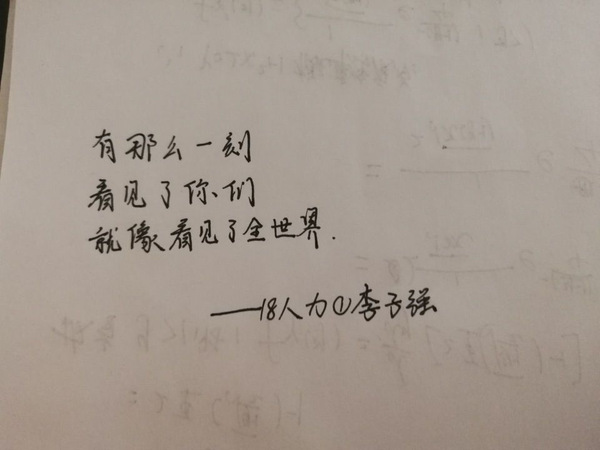 有那么一刻
看见了你们
就像看见了全世界.
——18人力①李子强